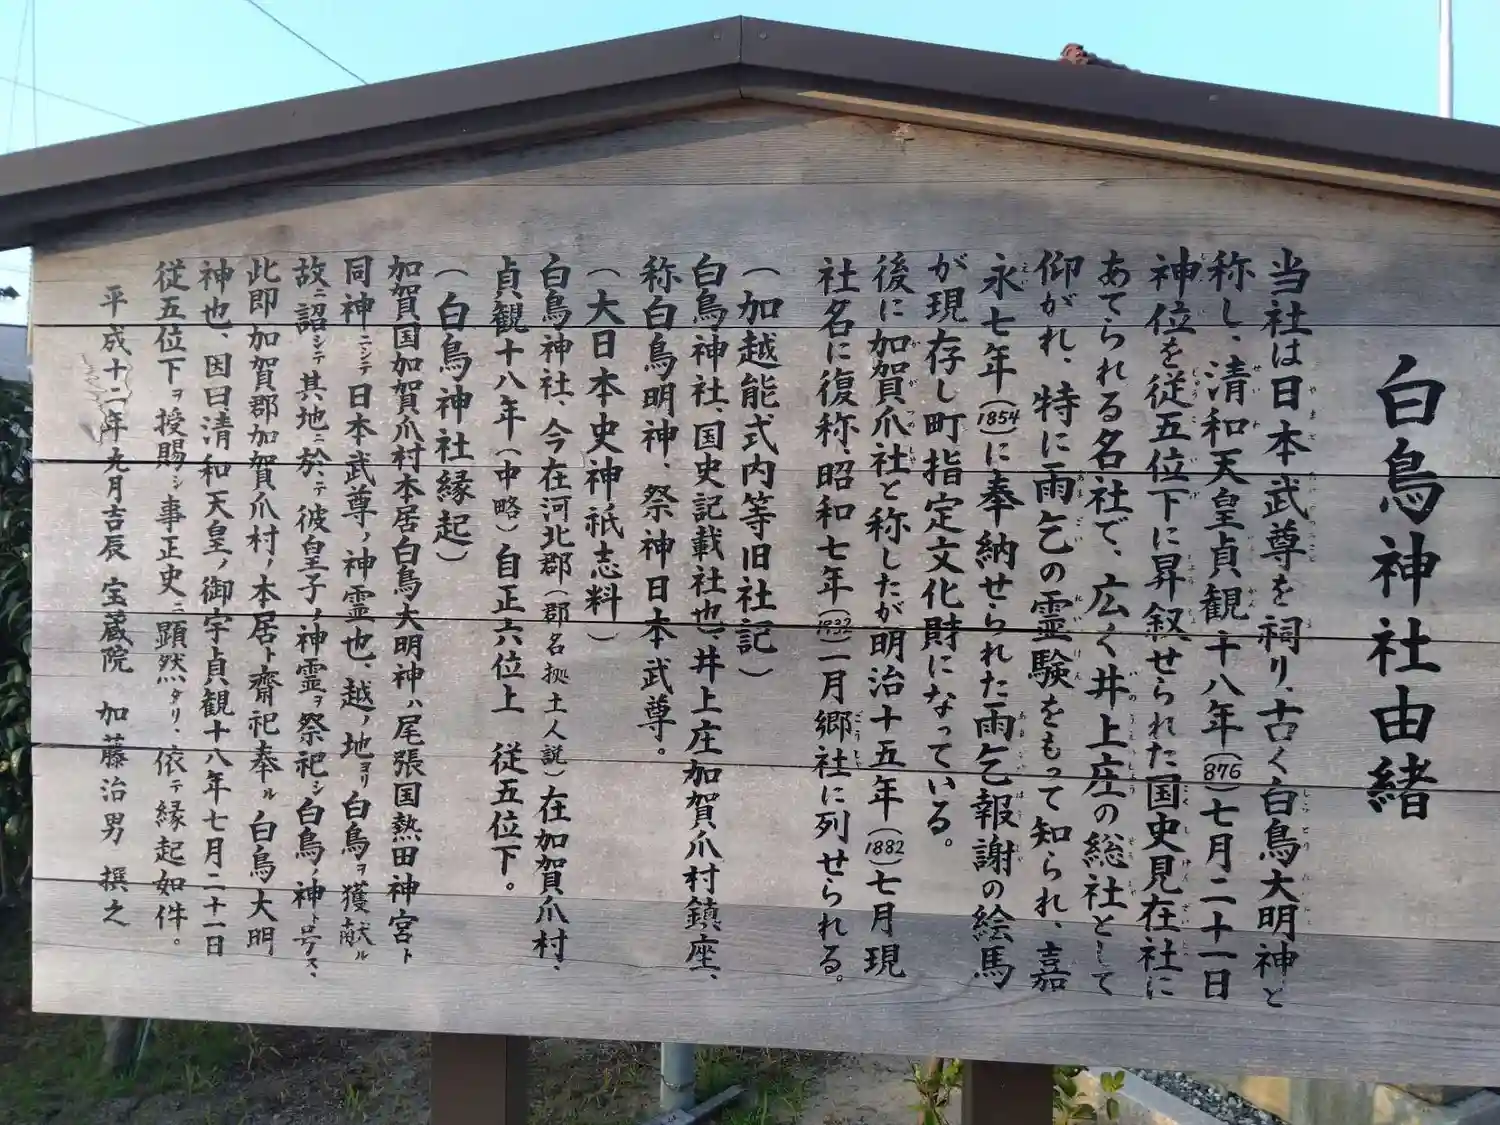 白鳥神社由緒
当社は日本武尊を祠り、古く白鳥大明神と
称し、清和天皇貞観十八年(876)七月二十一日
神位を従五位下に昇叙せられた国史見在社に
あてられる名社で、広く井上庄の総社として
仰がれ、特に雨乞の霊験をもって知られ、嘉
永七年(1854)に奉納せられた雨乞報謝の絵馬
が現存し町指定文化財になっている。
後に加賀爪社と称したが明治十五年(1882)七月現
社名に復称、昭和七年(1932)一月郷社に列せられる。
(加越能式内等旧社記)
白鳥神社、国史記載社也、井上庄加賀爪村鎮座、
称白鳥明神、祭神日本武尊。
(大日本史神祇志料)
白鳥神社、今在河北郡(郡名拠土人説)在加賀爪村、
貞観十八年(中略)自正六位上 従五位下。
(白鳥神社縁起)
加賀国加賀爪村本居白鳥大明神ハ尾張国熱田神宮ト
同神ニシテ日本武尊ノ神霊也、越ノ地ヨリ白鳥ヲ獲献ル
故ニ詔シテ其地ニ於テ彼皇子ノ神霊ヲ祭祀シ白鳥ノ神ト号ス、
此即加賀郡加賀爪村ノ本居ト齋祀奉ル白鳥大明
神也、因曰清和天皇ノ御宇貞観十八年七月二十一日
従五位下ヲ授賜シ事正史ニ顕然タリ、依テ縁起如件。
平成十二年九月吉辰 宝蔵院 加藤治男 撰之